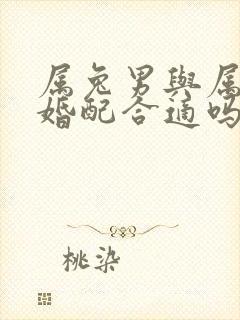 属兔男與属
婚配合適吗
桃染